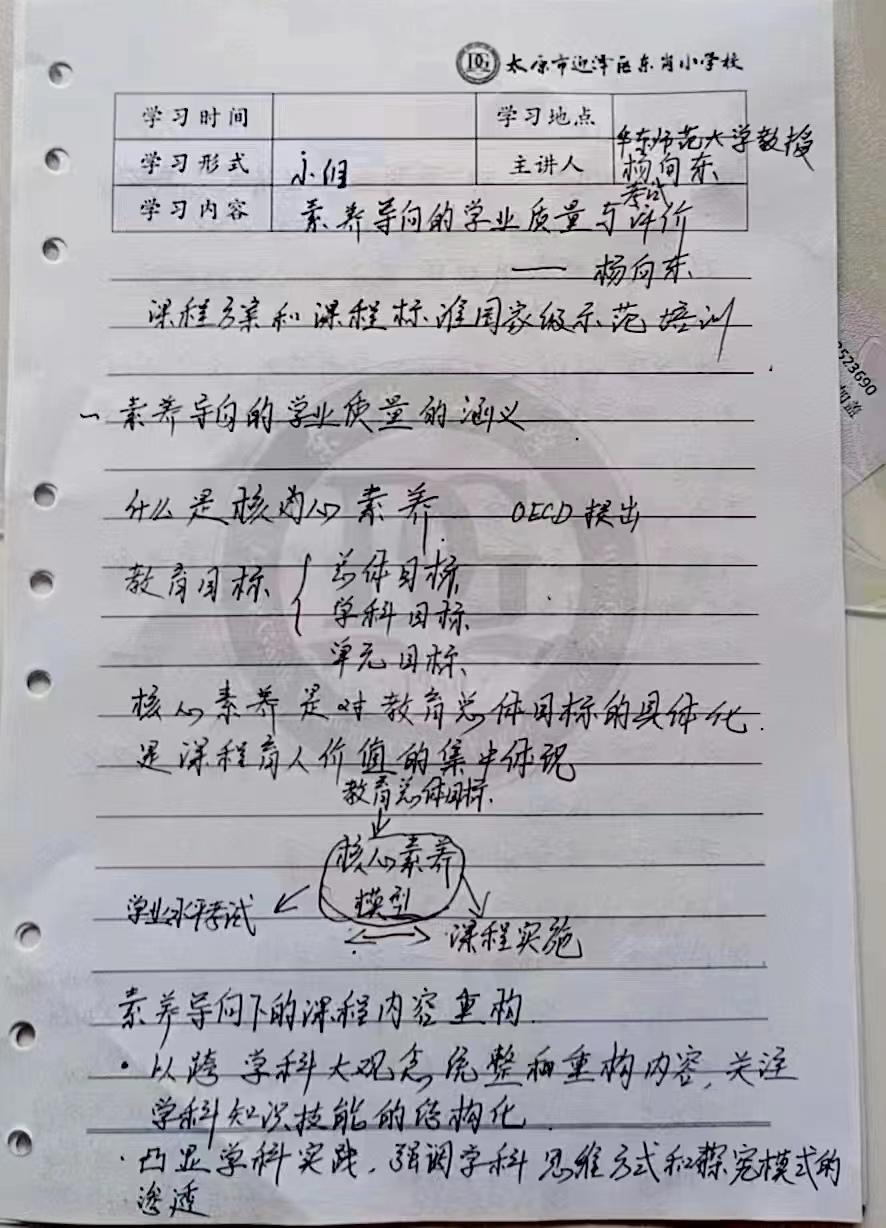 DG 太原市迎泽区东岗小学校
学习时间 学习地点
学习形式 小组 主讲人 华东师范大学教授
杨向东
学习内容 素养导向的学业质量与考试评价
—— 杨向东
课程方案和课程标准国家级示范培训
一 素养导向的学业质量的涵义
什么是核心素养 OECD提出
教育目标 { 总体目标
学科目标
单元目标
核心素养是对教育总体目标的具体化.
是课程育人价值的集中体现
教育总体目标
核心素养
模型
学业水平考试
课程实施
素养导向下的课程内容重构.
· 以跨学科大观念统整和重构内容, 关注
学科知识技能的结构化.
· 凸显学科实践, 强调学科思维方式和探究模式的
渗透
523690